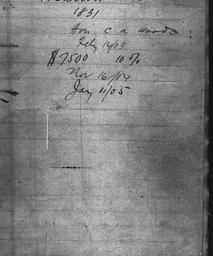 1831
Hon. C A Woods
Feby 14/03
$7500 10%
Nov 16/04
Jany 31/05